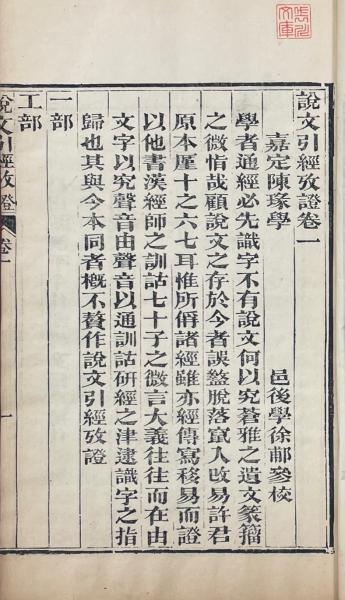 說文引經攷證卷一
嘉定陳瑑學
邑後學徐郙參校
學者通經必先識字不有說文何以究蒼雅之遺文篆籀
之微恉哉顧說文之存於今者誤盭脫落竄入改易許君
原本厪十之六七耳惟所偁諸經雖亦經傳寫移易而證
以他書漢經師之訓詁七十子之微言大義往往而在由
文字以究聲音由聲音以通訓詁研經之津逮識字之指
歸也其與今本同者概不贅作說文引經攷證
一部
工部
說文引經攷證
卷一
一